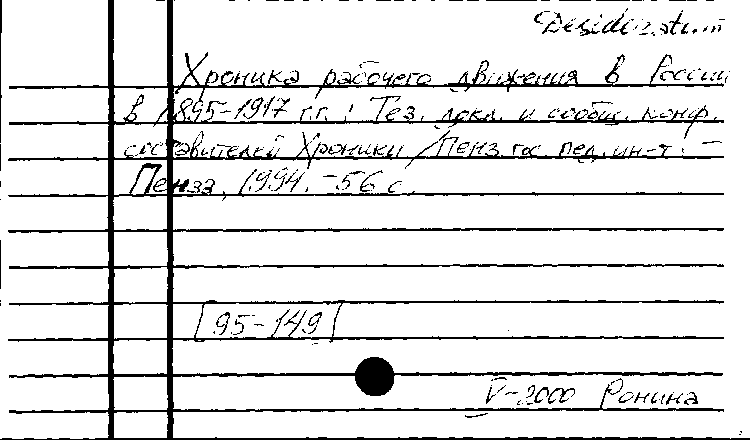 Desideratum
Хроника рабочего движения в России
в 1895-1917 г.г. : Тез. докл. и сообщ. конф.
составителей Хроники / Пенз. гос. пед. ин-т. -
Пенза, 1994. - 56 с.
[95-149]
V-2000 Ронина